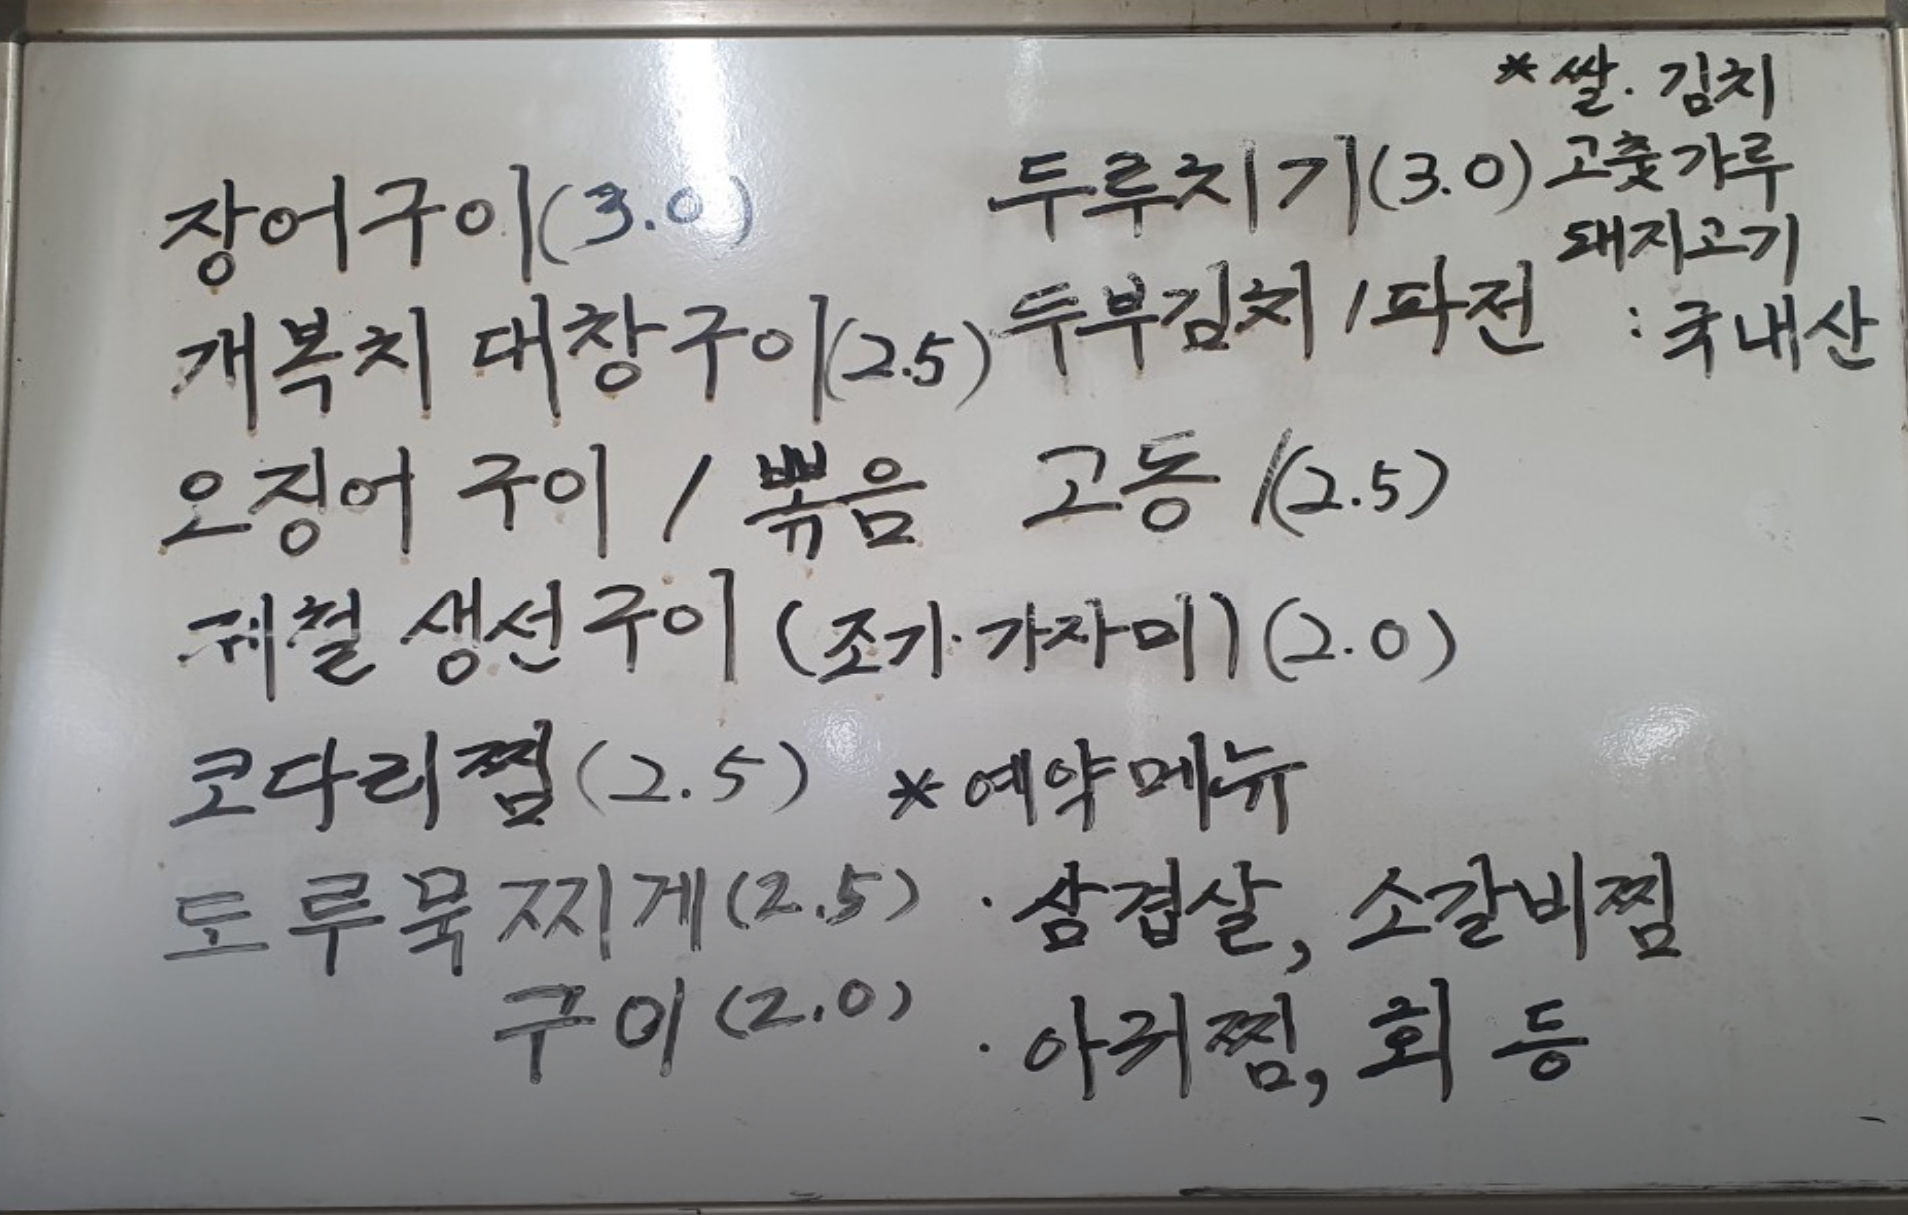 장어구이(3.0)
개복치 대창구이(2.5)
오징어 구이 / 볶음
제철 생선구이 (조기·가자미) (2.0)
코다리찜(2.5)
도루묵찌게(2.5)
구이(2.0)
두루치기(3.0)
두부김치 / 파전
고동 /(2.5)
* 쌀. 김치
고춧가루
돼지고기
: 국내산
* 예약메뉴
· 삼겹살, 소갈비찜
· 아귀찜, 회 등